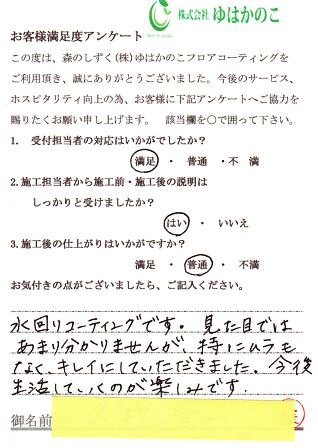 株式会社 ゆはかのこ
お客様満足度アンケート
この度は、森のしずく(株)ゆはかのこフロアコーティングを
ご利用頂き、誠にありがとうございました。今後のサービス、
ホスピタリティ向上の為、お客様に下記アンケートへご協力を
賜りたくお願い申し上げます。 該当欄を〇で囲って下さい。
1. 受付担当者の対応はいかがでしたか?
満足 ・ 普通 ・不 満
2.施工担当者から施工前・施工後の説明は
しっかりと受けましたか?
はい ・ いいえ
3.施工後の仕上がりはいかがですか?
満足 ・ 普通 ・ 不満
お気付きの点がございましたら、ご記入ください。
水回りコーティングです。見た目では
あまり分かりませんが、特にムラも
なく、キレイにしていただきました。今後
生活していくのが楽しみです。
御名前